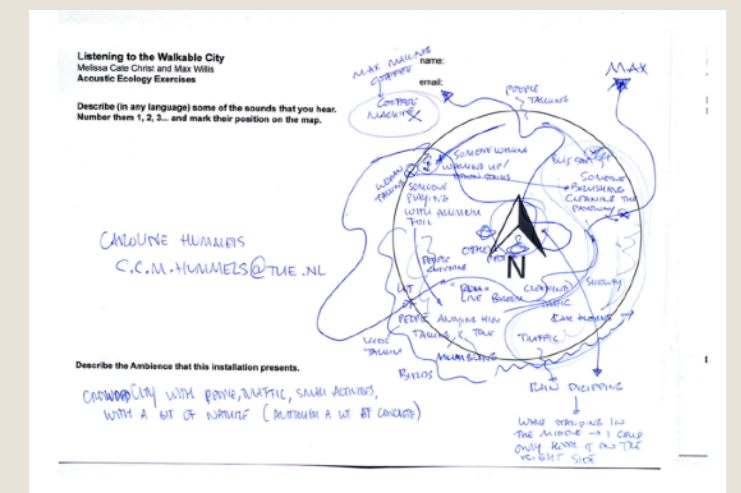 Listening to the Walkable City
Melissa Cate Christ and Max Willis
Acoustic Ecology Exercises
name:
email:
Describe (in any language) some of the sounds that you hear.
Number them 1, 2, 3... and mark their position on the map.
MAX MAKING
COFFEE
COFFEE
MACHINE
PEOPLE
TALKING
MAX
SOMEONE WALKING
WALKING UP/
DOWN STAIRS
WOMAN
TALKING
SOMEONE
PLAYING
WITH ALUMINIUM
FOIL
SOMEONE
BRUSHING
CLEANING THE
N
PEOPLE
LOT
OF
PEOPLE
TALKING
LIVE
KIDS
TALKING
MUMBLING
BIRDS
TRAFFIC
CAR HORNS
RAIN DRIPPING
WHILE STANDING IN
THE MIDDLE → I COULD
ONLY HEAR IT ON THE
RIGHT SIDE
CAROLINE HUMMELS
C.C.M.HUMMELS@TUE.NL
Describe the Ambience that this installation presents.
CROWDED CITY WITH PEOPLE, TRAFFIC, SMALL ACTIVITIES,
WITH A BIT OF NATURE (ALTHOUGH A LOT OF CONCRETE)